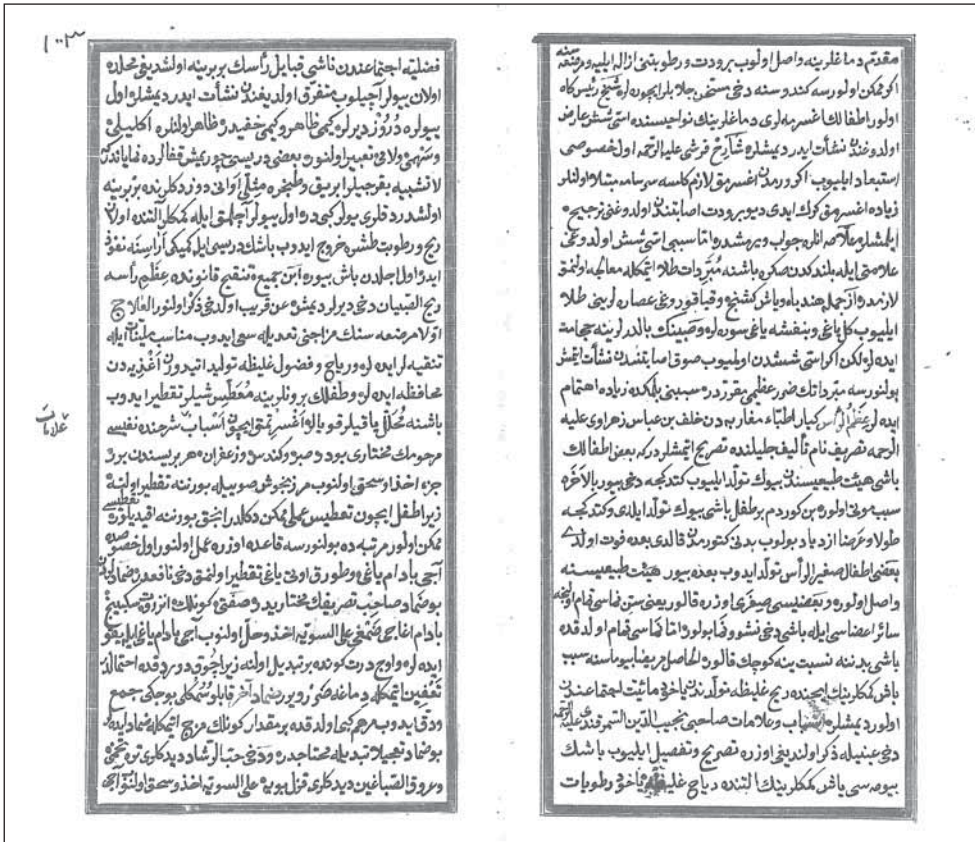 مقدّم دماغلرينه واصل اولوب برودت و رطوبتنى ازاله ايليه و مرضعه
اكر ممكن اولورسه كندوسنه دخى مسخن جلابلر ايچوره لر شيخ رئيس كاه
اولور اطفالك اغسرمه لرى دماغلرينك نواحيسنده اسّى شش عارض
اولدوغندن نشأت ايدر ديمشلر شارح قرشى عليه الرحمه اول خصوصى
استبعاد ايليوب اكر ورمدن اغسرمق لازم كلسه سرسامه مبتلا اولنلر
زياده اغسرمق كرك ايدى ديو برودت اصابتندن اولدوغنى ترجيح
ايلمشلر علامه انلره جواب ويرمشدر امّا سببى اسّى شش اولدوغى
علامتى ايله بلندكدن صكره باشنه مبرّدات طلا اتمكله معالجه اولنمق
لازمدر از جمله هندبا و ياش كشنيج و قباق قوروغى عصاره لرينى طلا
ايليوب كل ياغى و بنفشه ياغى سوره لر و صبينك بالدرلرينه حجامت
ايده لر لكن اكر اسّى ششدن اولميوب صوق اصابتندن نشأت ايتمش
بولنورسه مبرّداتك ضرر عظيمى مقرّردر سببنى بلمكده زياده اهتمام
ايده لر عظم الرأس كبار اطبّاء مغاربه دن خلف بن عباس زهراوى عليه
الرحمه تصريف نام تأليف جليلنده تصريح ايتمشلردر كه بعض اطفالك
باشى هيئت طبيعيسندن بيوك تولّد ايليوب كتدكجه دخى بيور بالاخره
سبب موتى اولور بن كوردم بر طفل باشى بيوك تولّد ايلدى و كتدكجه
طولا و عرضا ازدياد بولوب بدنى كتورمدن قالدى بعده فوت اولدى
بعضى اطفال صغير الرأس تولّد ايدوب بعده بيور هيئت طبيعيسنه
واصل اولور و بعضيسى صغرى اوزره قالور يعنى سنّ نماسى تمام اولنجه
سائر اعضاسى ايله باشى دخى نشو و نما بولور امّا نماسى تمام اولدقده
باشى بدننه نسبت ينه كوچك قالور الحاصل بيوماسنه سبب
باش كمكلرينك ايچنده ريح غليظه تولّدندن ياخود مائيّت اجتماعندن
اولور ديمشلر اسباب و علامات صاحبى نجيب الدين السمرقندى عليه الرحمه
دخى عينيله ذكر اولنديغى اوزره تصريح و تفصيل ايليوب باشك
بيومه سى باش كمكلرينك التنده رياح غليظه ياخود رطوبات
فضليّه اجتماعندن ناشى قبايل رأسك بربرينه اولشديغى محلده
اولان ييولر آچيلوب متفرّق اولديغندن نشأت ايدر ديمشلر اول
ييولره دروز ديرلر كيمى ظاهر و كيمى خفيدر ظاهر اولنلره اكليلى
و سهمى و لامى تعبير اولنور بعضى دريسى چوريمش قفالرده نماياندر
لا تشبيه بقرجيلر ابريق و طنجره مثللى اوانى دوزدكلرنده بربرينه
اولشدردقلرى يولر كبى در اول ييولر آچلمق ايله كمكلر آلتنده اولان
ريح و رطوبت طشره خروج ايدوب باشك دريسى ايله كميكى آراسنه نفوذ
ايدر اول اجلدن باش بيور ابن جميع تنقيح قانونده عظم رأسه
ريح الصبيان دخى ديرلر ديمش عن قريب اولدخى ذكر اولنور العلاج
اوّلا مرضعه سنك مزاجنى تعديله سعى ايدوب مناسب مليّنات ايله
تنقيه لر ايده لر و رياح و فضول غليظه توليد ايدر اغذيه دن
محافظه ايده لر و طفلك برونلرينه معطّس شيلر تقطير ايدوب
باشنه محلّل ياقيلر قويالر اغسرتمق ايچون اسباب شرحنده نفيسى
مرحومك مختارى بودر صبر و كندس و زعفران هر بريسندن برر
جزء اخذ و سحق اولنوب مرزنجوش صوييله بورننه تقطير اولنه
زيرا طفل ايچون تعطيس عملى ممكن دكلدر انجق بورننه تقطيسى
ممكن اولور مرتبه ده بولنورسه قاعده اوزره عمل اولنور اول خصوصده
آجى بادام ياغى و طورق اوتى ياغى تقطير اولنمق دخى نافعدر ضمادى
بو ضماد صاحب تصريفك مختاريدر وصفتى كونلك انزروت سكبينج
بادام اغاجى ضمغى على السويه اخذ و حلّ اولنوب آجى بادام ياغى ايله
ايده لر و اوچ درت كونده بر تبديل اولنه زيرا چوق دوردقده احتمالدر
تعفين ايتمكله دماغه ضرر ويرر ضماد آخر قابلو سمكلى بوجكى جمع
و دق ايدوب مرهم كبى اولدقده بر مقدار كونلك مزج اتمكله ضماد ايده لر
بو ضماد تعجيلا تبديله محتاجدر و دخى حبّ الرشاد ديدكلرى تره تخمى
و عروق الصباغين ديدكلرى قزل بويه على السويه اخذ و سحق اولنوب آجى
علامات